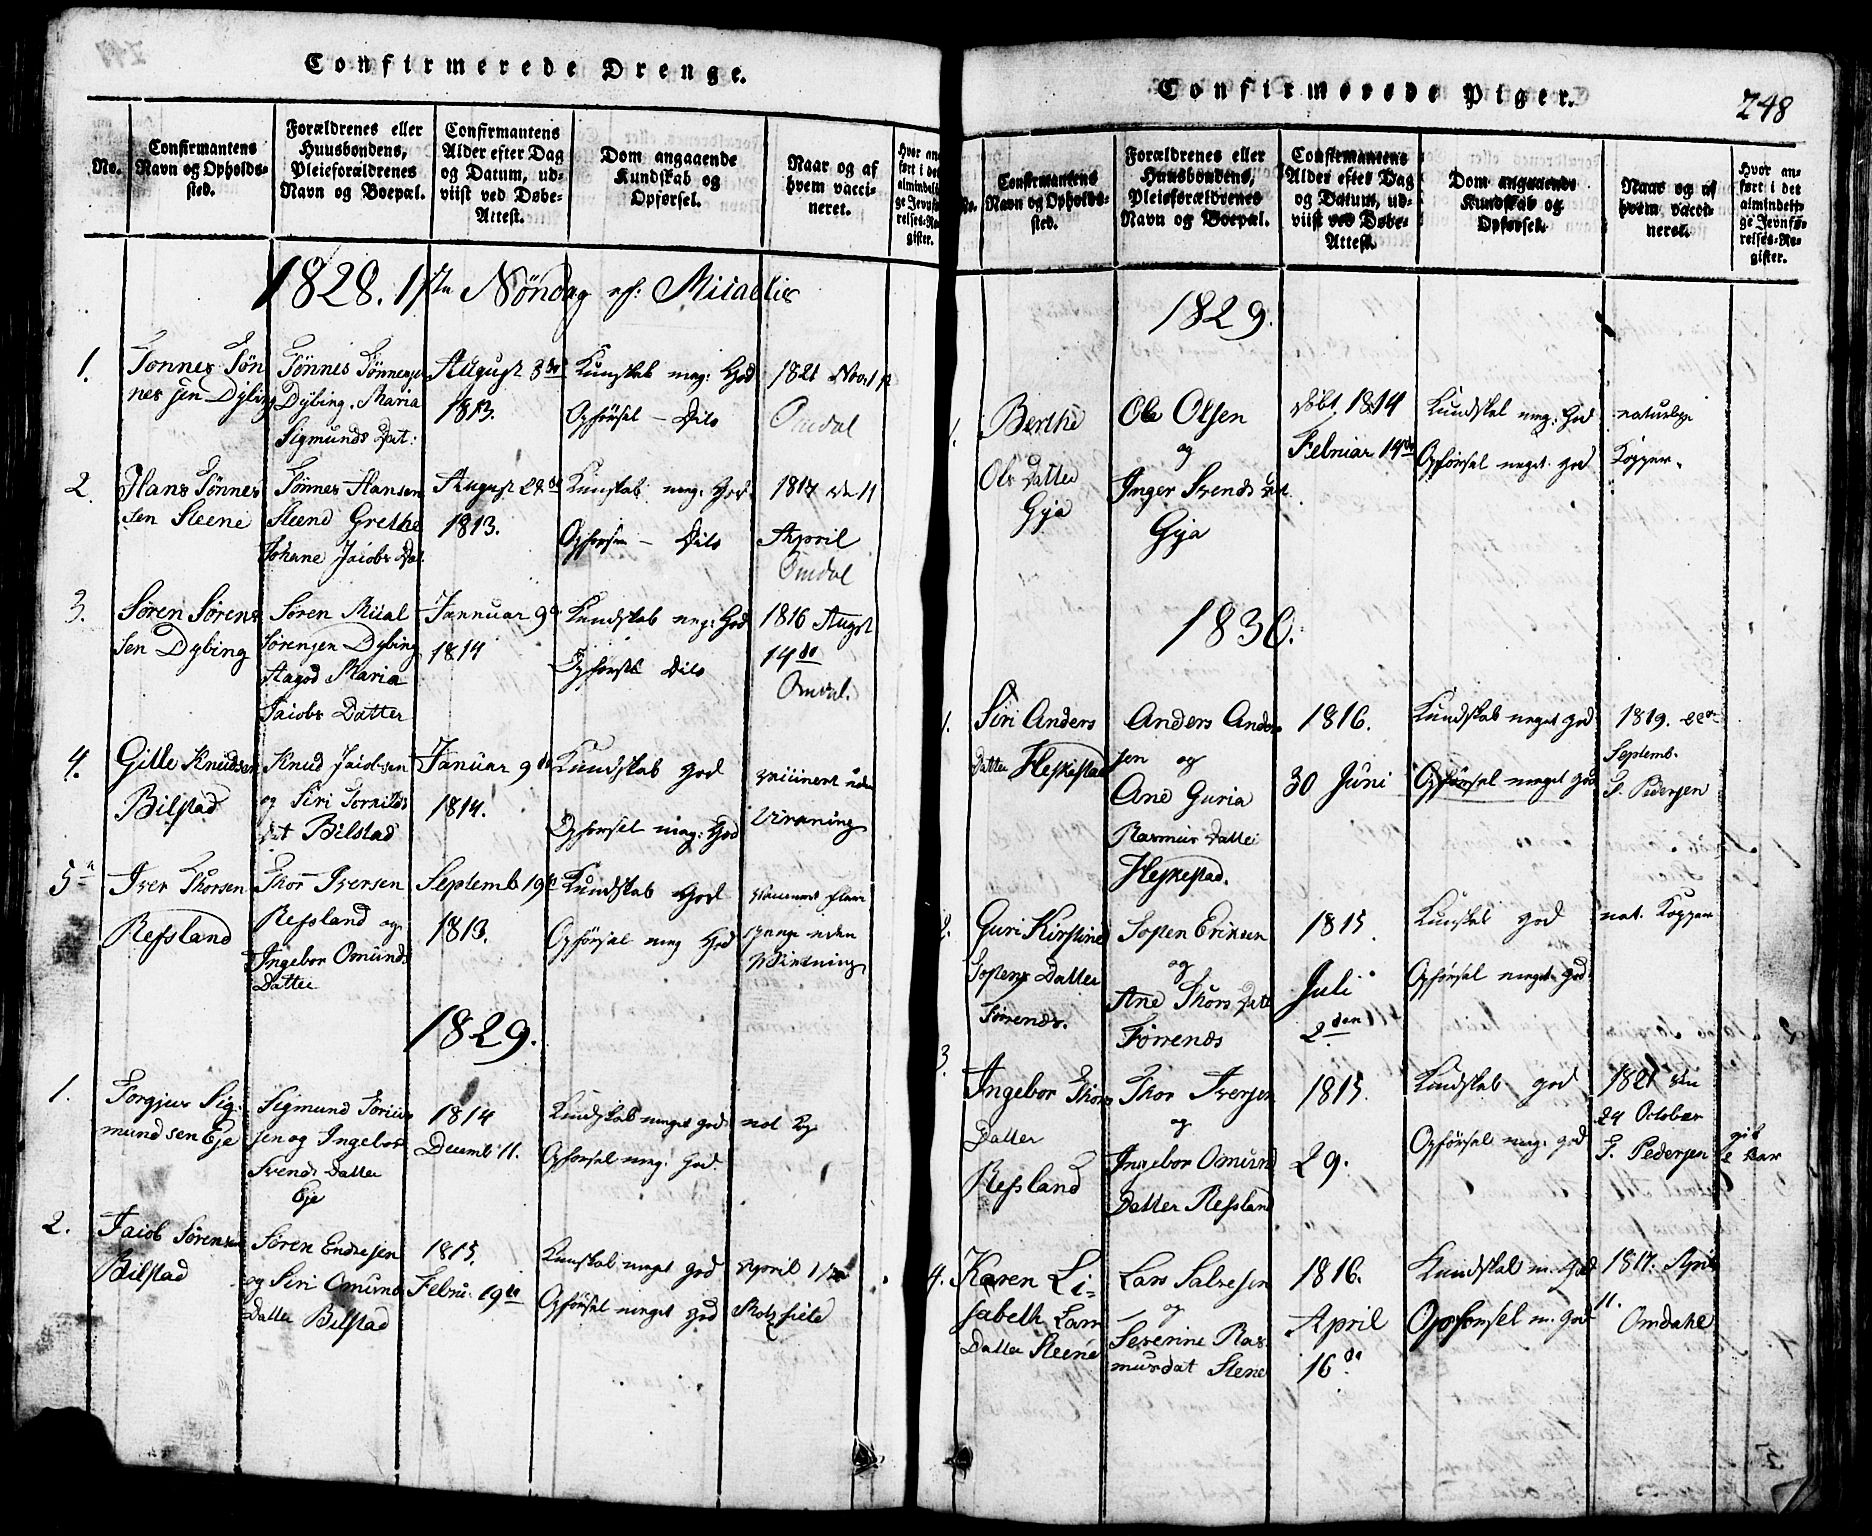 Confirmerede Drenge.
No.
Confirmantens
Navn og Opholds-
sted.
Forældrenes eller
Huusbondens,
Pleieforældrenes
Navn og Boepæl.
Confirmantens
Alder efter Dag
og Datum, ud-
viist ved Døbe-
Attest.
Dom angaaende
Kundskab og
Opførsel.
Naar og af
hvem vacci-
neret.
Hvor an-
ført i det
almindeli-
ge Jevnfø-
relses-Re-
gister.
1828. 1ste Søndag ef: Micaelis
1.
Tønnes Tøn
nessen Dybing
Tønnes Tønnesen
Dybing. Maria
Sigmunds Dat:
August 3de
1813.
Kunskab meg: God
Opførsel — Dito
1821 Nov: 1
Omdal
2.
Hans Tønnes
sen Steene
Tønnes Hansen
Steene Grethe
Johane Jacobs Dat.
August
1813.
Kunskab meg: God
Opførsel — Dito
1817 den 11
April
Omdal
3.
Søren Sørens
sen Dybing
Søren Mical
Sørensen Dybing
Aagod Maria
Jacobs Datter
Januar 9de
1814
Kundskab meg: God
Opførsel Dito
1816 August
14de
Omdal.
4.
Gitle Knudsen
Bilstad
Knud Jacobsen
og Siri
Dat Bilstad
Januar 9de
1814.
Kundskab god
Opførsel meg: God
uden
Virkning
5
Iver Thorsen
Refsland
Thor Iversen
Refsland og
Ingebor Omunds
Datter
Septemb. 19
1813.
Kundskab God
Opførsel meg God
gange uden
Virkning
1829.
1.
Torgjus Sig-
mundsen Eje
Sigmund
sen og Ingebor
Svends Datter
Eje
1814
Decemb. 11.
Kundskab meget god
Opførsel meg. God.
nat Kop
2.
Jacob Sørensen
Bilstad
Søren Endresen
og Siri Omunds
Datter Bilstad
1815.
Febru. 19de
Kunskab meget god
Opførsel meget god
April
Confirmerede Piger.
248
No.
Confirmantens
Navn og Opholds-
sted.
Forældrenes eller
Huusbondens,
Pleieforældrenes
Navn og Boepæl.
Confirmantens
Alder efter Dag
og Datum, ud-
viist ved Døbe-
Attest.
Dom angaaende
Kundskab og
Opførsel.
Naar og af
hvem vacci-
neret.
Hvor an-
ført i det
almindeli-
ge Jevnfø-
relses-Re-
gister.
1829.
1.
Berthe
Ols Datter
Gya
Ole Olsen
og
Inger Svends Dat.
Gya
døbt 1814
Februar 14de
Kundskab meg: God
Opførsel meget god
naturlige
Kopper.
1830.
1.
Siri Anders
Datter Heskestad
Anders Anders
sen og
Ane Guria
Rasmus Datter
Heskestad.
1816.
30 Juni
Kundskab meget god
Opførsel meget god
1819.
Septemb.
S. Pedersen
2.
Guri Kirstine
Tostens Datter
Tørrends.
Tosten Eriksen
og
Ane Thors Datt
Tørrends
1815.
Juli
2den
Kunskab god
Opførsel meget god
nat. Kopper
3
Ingebor Thors
Datter
Refsland
Thor Iversen
og
Ingebor Omund
Datter Refsland
1815.
29.
Kundskab god
Opførsel meg. god
1821 den
24 October
S. Pedersen
4.
Karen Li-
sabeth Lars
Datter Steene
Lars Salvesen
og
Severine Ras-
musdat Stene
1816.
April
16de
Kundskab m. God
Opførsel m. God
1817. April
11.
Omdahl